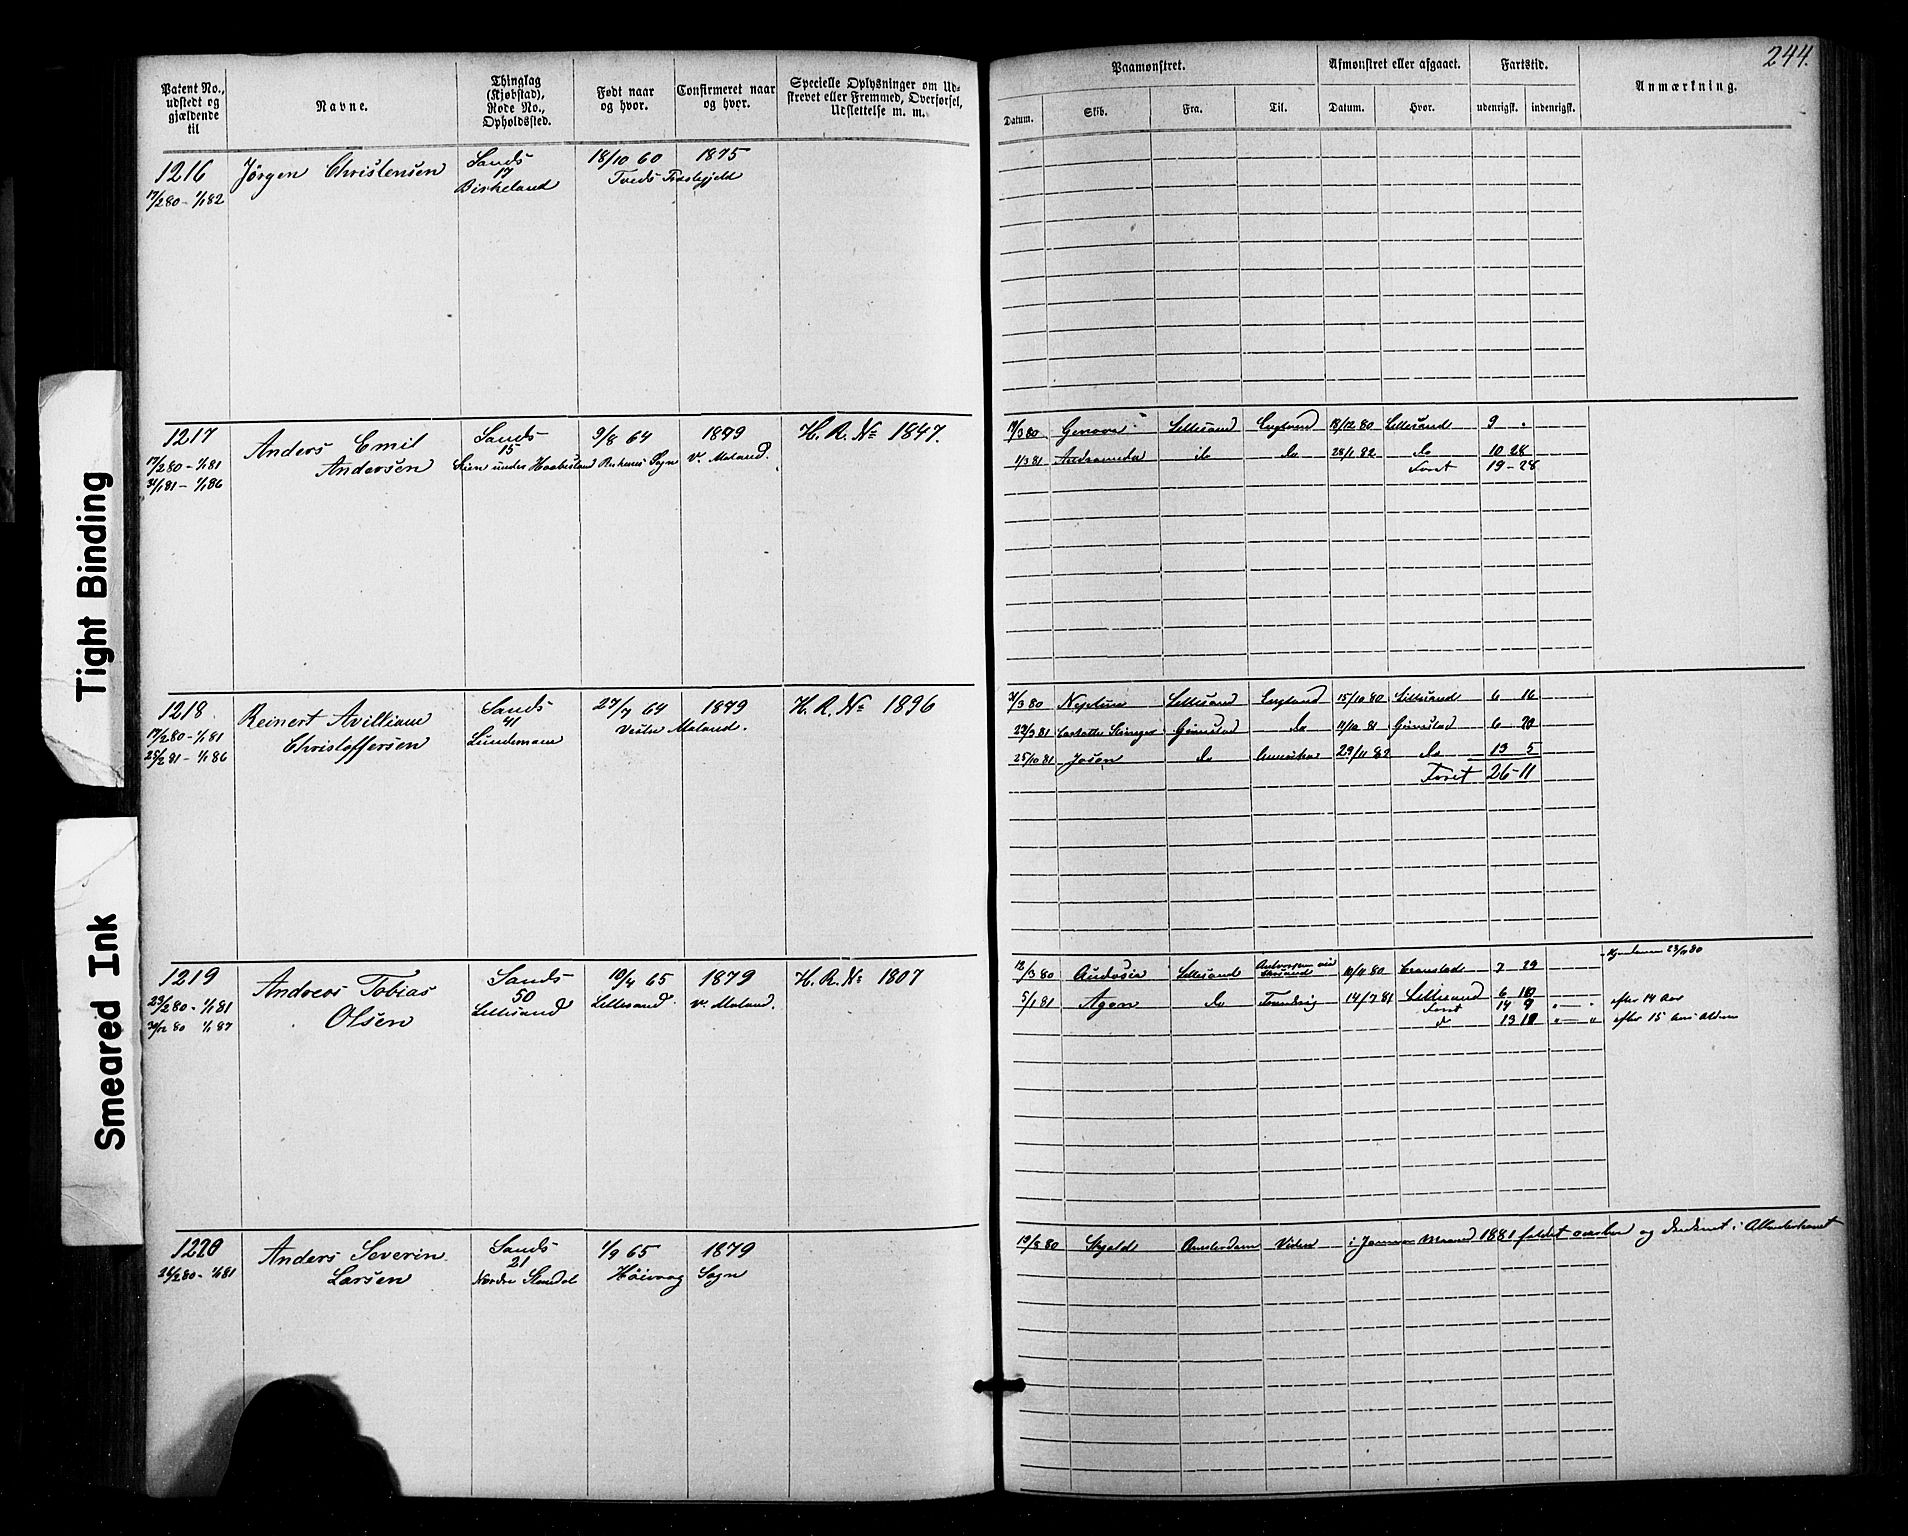 244.
Patent No., udstedt og gjældende til
Navne.
Thinglag (Kjøbstad), Rode No., Opholdssted.
Født naar og hvor.
Confirmeret naar og hvor.
Specielle Oplysninger om Udskrevet eller Fremmed, Overførsel, Udslettelse m. m.
Paamønstret.
Afmønstret eller afgaaet.
Fartstid.
Anmærkning.
Datum. Skib. Fra. Til. Datum. Hvor. udenrigsk. indenrigsk.
1216 Jørgen Christensen Sands 18/10 60 1875
17
17/2 80 - 1/1 82 Birkeland Tveds
1217 Anders Emil Sands 9/8 64 1879 H. R. No 1847.
Andersen 15
17/2 80 - 1/1 81 Rækenes Sogn V. Moland.
31/1 81 - 1/1 86
Genova Lillesand England 18/12 80 Lillesand 9 "
1/3 81 Andromeda do do 28/1 82 do 10 28
Foret 19 - 28
1218 Reinert Avilliam Sands 27/7 64 1879 H. R. No 1896
Christoffersen 41 Vestre Moland.
17/2 80 - 1/1 81
25/2 81 - 1/1 86
31/3 80 Neptun Lillesand England 15/10 80 Lillesand 6 16
22/3 81 Grimstad do 11/10 81 Grimstad 6 20
25/10 81 do Amerika 29/11 82 do 13 5
Foret 26 - 11
1219 Andreas Tobias Sands 19/4 65 1879 H. R. No 1807
Olsen 50
29/2 80 - 1/1 81 Lillesand Lillesand. V. Moland.
30/12 80 1/1 87
12/3 80 Lillesand 11/11 80 7 29
5/1 81 Agen do 14/7 81 Lillesand 6 10
Foret 14 9 " - " efter 14 Aar
do 13 10 " - " efter 15 Aars Alderen
1220 Anders Severin Sands 1/9 65 1879
Larsen 21
26/2 80 - 1/1 81 Nordre Høivaag Sogn
19/8 80 Skjold Amsterdam i Januar Maaned 1881 faldet overbord og druknet i Atlanterhavet
Tight Binding
Smeared Ink